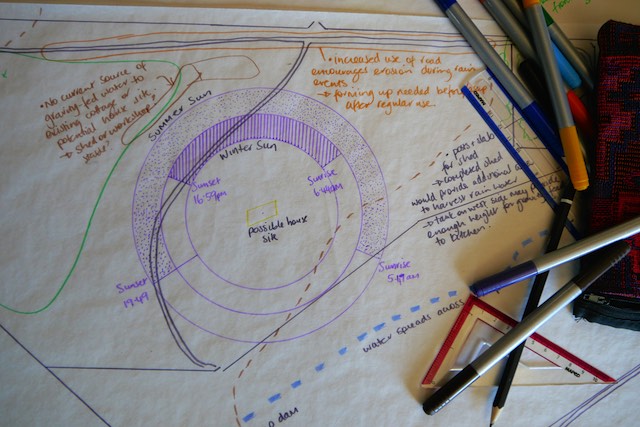 • No current source of
gravity-fed water to
existing cottage or
potential house site,
→ Shed or workshop?
• Increased use of road
encourages erosion during rain
events
→ forming up needed before
after regular use.
Summer Sun
Winter Sun
Sunset
16:59pm
Sunrise
6:44am
possible house
site
Sunset
19:49
Sunrise
5:49am
• posts + slab
for shed
→ completed shed
would provide additional
to harvest rain
→ tank on west side may
enough height for
to kitchen.
water spreads across
dam